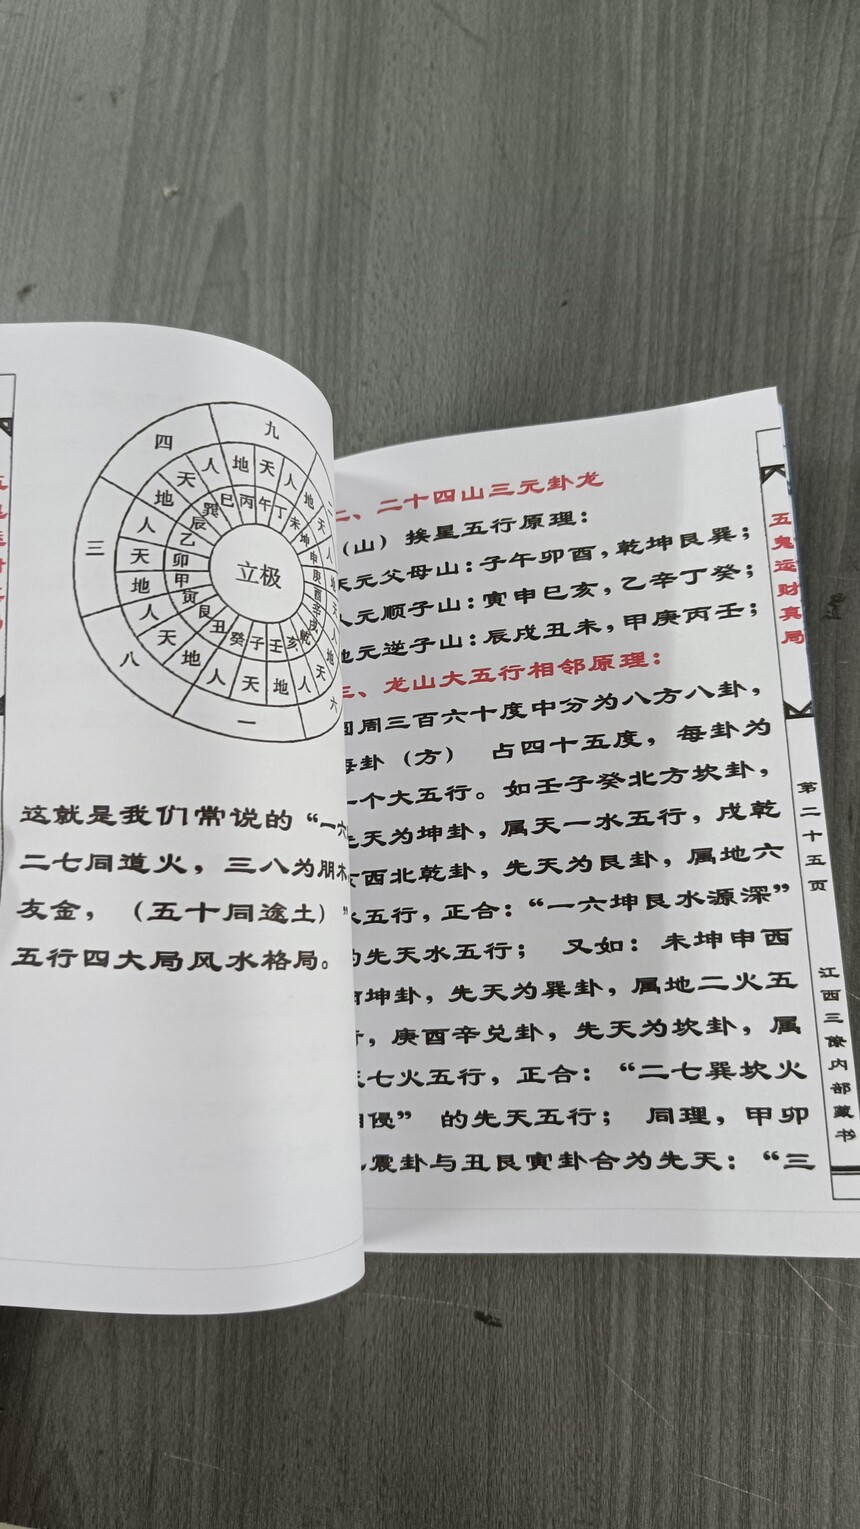 九
四
三
八
一
六
地
天
人
地
天
人
地
天
人
地
天
人
地
天
人
地
天
人
地
天
人
巳
丙
午
丁
未
坤
申
庚
酉
辛
戌
乾
亥
壬
子
癸
丑
艮
寅
甲
卯
乙
辰
巽
立极
这就是我们常说的“一六
二七同道火，三八为朋木
友金，（五十同途土）”
五行四大局风水格局。
二、二十四山三元卦龙
（山）挨星五行原理：
天元父母山：子午卯酉，乾坤艮巽；
人元顺子山：寅申巳亥，乙辛丁癸；
地元逆子山：辰戌丑未，甲庚丙壬；
三、龙山大五行相邻原理：
周三百六十度中分为八方八卦，
每卦（方） 占四十五度，每卦为
一个大五行。如壬子癸北方坎卦，
先天为坤卦，属天一水五行，戌乾
亥西北乾卦，先天为艮卦，属地六
水五行，正合：“一六坤艮水源深”
的先天水五行； 又如：未坤申西
南坤卦，先天为巽卦，属地二火五
行，庚酉辛兑卦，先天为坎卦，属
天七火五行，正合：“二七巽坎火
相侵” 的先天五行； 同理，甲卯
乙震卦与丑艮寅卦合为先天：“三
五鬼运财真局
第二十五页
江西三僚内部藏书